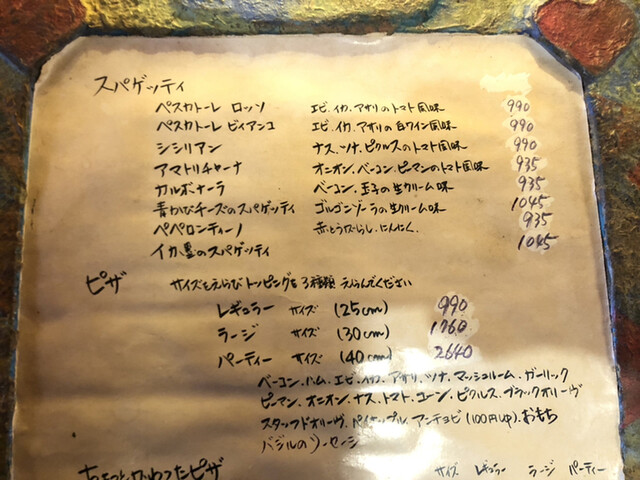 スパゲッティ
ペスカトーレ ロッソ エビ、イカ、アサリのトマト風味 990
ペスカトーレ ビアンコ エビ、イカ、アサリの白ワイン風味 990
シシリアン ナス、ツナ、ピクルスのトマト風味 990
アマトリチャーナ オニオン、ベーコン、ピーマンのトマト風味 935
カルボナーラ ベーコン、玉子の生クリーム味 935
青かびチーズのスパゲッティ ゴルゴンゾーラの生クリーム味 1045
ペペロンティーノ 赤とうがらし、にんにく、 935
イカ墨のスパゲッティ 1045
ピザ サイズをえらびトッピングを3種類えらんでください
レギュラー サイズ (25cm) 990
ラージ サイズ (30cm) 1760
パーティー サイズ (40cm) 2640
ベーコン、ハム、エビ、イカ、アサリ、ツナ、マッシュルーム、ガーリック
ピーマン、オニオン、ナス、トマト、コーン、ピクルス、ブラックオリーヴ
スタッフドオリーヴ、パイナップル、アンチョビ(100円UP)、おもち
バジルのソーセージ
ちょっとかわったピザ サイズ レギュラー ラージ パーティー